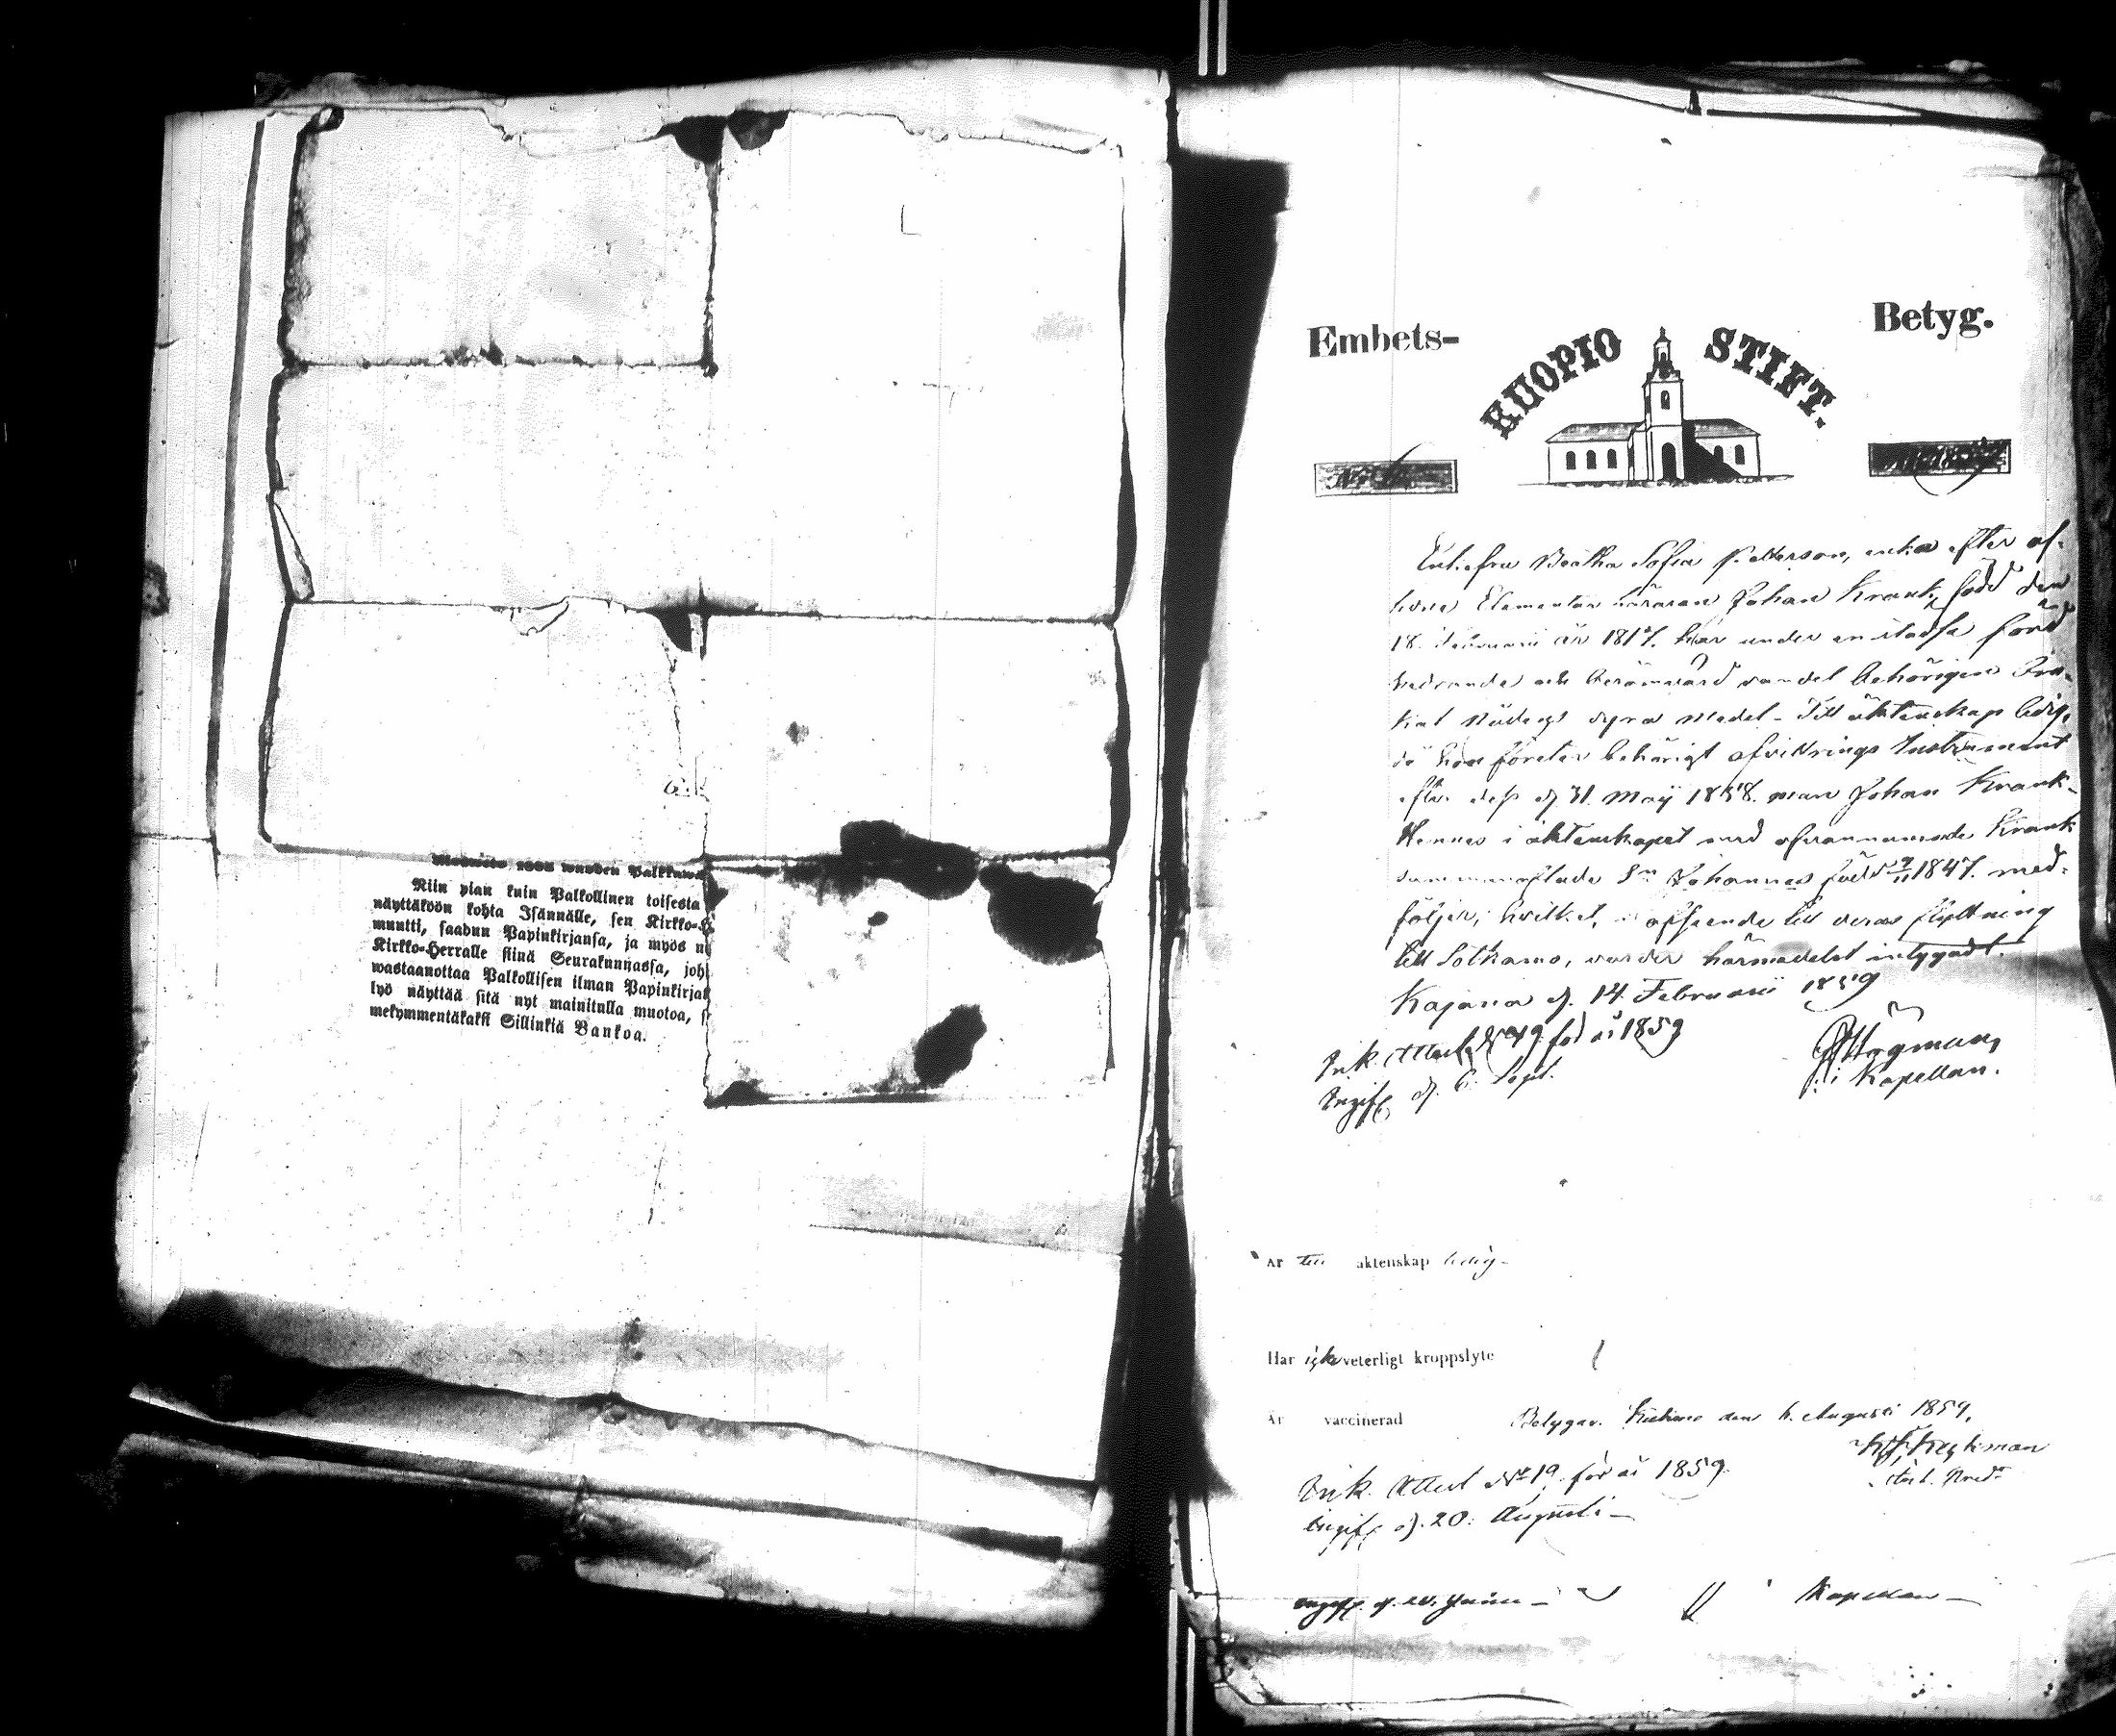 wuoden Palkkuu
Niin pian kuin Palkollinen toisesta
näyttäköön kohta Isännälle, sen Kirkko-H
muutti, saadun Papinkirjansa, ja myös
Kirkko-Herralle siinä Seurakunnassa, joh
wastaanottaa Palkollisen ilman Papinkirja
lyö näyttää sitä nyt mainitulla muotoa,
mekymmentäkaksi Sillinkiä Bankoa.
Embets-
Betyg.
KUOPIO STIFT.
Enkefru Beatha Sofia Petterson, enka efter af-
lidne Elementar läraren Johan Krank, född den
18. Februarii år 1817. har under en stadse förd
hedrande och berömvärd vandel behörigen
kat Nådens dyra medel. Till äktenskap ledig,
då hon företer behörigt afvittrings Instrument
efter dess d. 31. Maij 1858. man Johan Krank.
Hennes i äktenskapet med ofvannämnde Krank
sammanaflade Son Johannes född 1847. med-
följer, hvilket, afseende till deras flyttning
till Sotkamo, varder härmedelst intygadt.
Kajana d. 14. Februarii 1859
Ink. Attest No 49. för år 1859
Ungif. d. 6. Sept.
Högman,
Kapellan.
Är till äktenskap ledig-
Har icke veterligt kroppslyte
Är vaccinerad
Betygar. den 6. Augusti 1859,
Ink. Attest No 19. för år 1859.
d. 20. Augusti
Kapellan